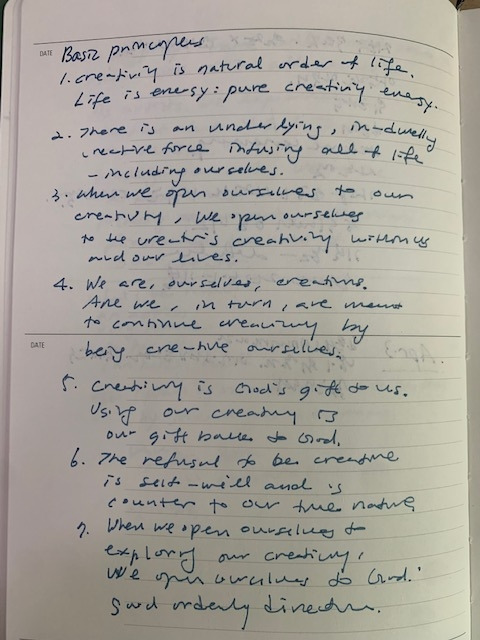 DATE
Basic principles
1. creativity is natural order of life.
Life is energy: pure creativity energy.
2. There is an underlying, in-dwelly
creative force infusing all of life
- including ourselves.
3. when we open ourselves to our
creativity, we open ourselves
to the creator's creativity within us
and our lives.
4. We are, ourselves, creations.
And we, in turn, are meant
to continue creativity by
DATE
being creative ourselves.
5. Creativity is God's gift to us.
Using our creativity is
our gift back to God.
6. The refusal to be creative
is self-will and is
counter to our true nature
7. When we open ourselves to
exploring our creativity,
we open ourselves to God:
good orderly direction.